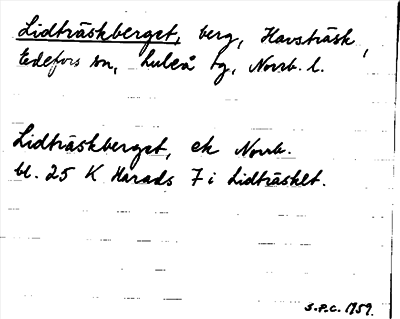 Lidträskberget, berg, Havsträsk,
Edefors sn, Luleå tg, Norrb. l.
Lidträskberget, ek Norrb.
bl. 25 K Harads 7 i Lidträsket.
S.P.C. 1959.